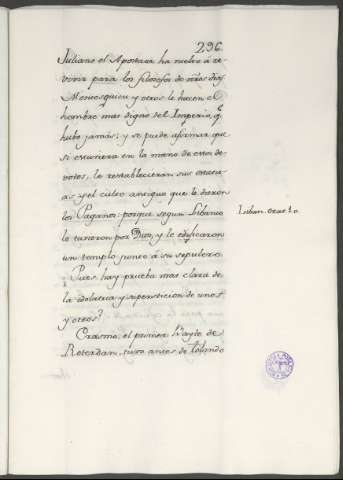 296
Juliano el Apostata ha vuelto à re-
vivir para los filosofos de estos dias
Montesquieu y otros le hacen el
hombre mas digno del Imperio, q̃
hubo jamàs; y se puede afirmar que
si estuviera en la mano de estos de-
votos, le restablecieran sus estatu-
as y el culto antiguo que le dieron
los Paganos: porque segun Libanio
le tuvieron por Dios, y le edificaron
un templo junto à su sepulcro.
Liban. Orat. 10
Pues hay prueba mas clara de
la idolatria y supersticion de unos
y otros?
Erasmo, el primer Bayle de
Roterdan, tuvo antes de Tolando